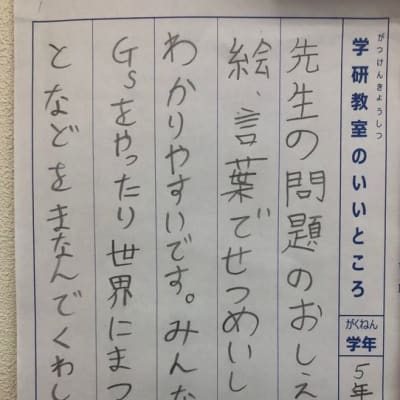 がっけんきょうしつ
学研教室のいいところ
がくねん
学年
5年
先生の問題のおしえ
絵、言葉でせつめいし
わかりやすいです。みんな
GSをやったり世界にまつ
となどをまなんでくわし